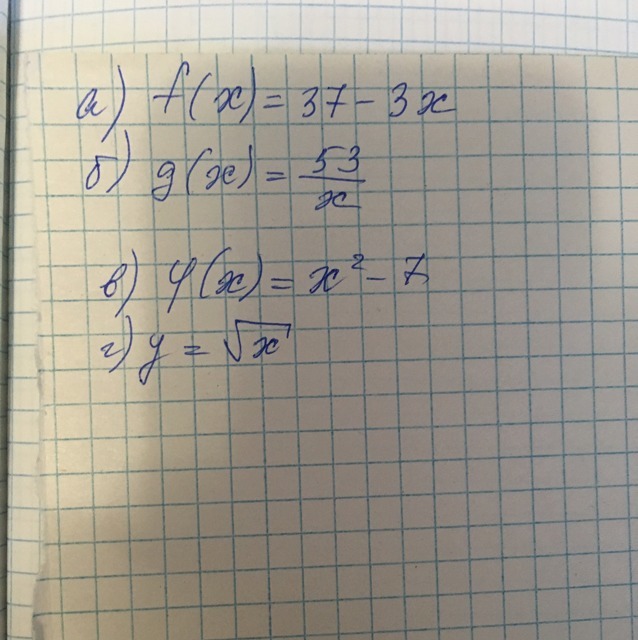 а) f(x) = 37 - 3x
б) g(x) = 53/x
в) φ(x) = x² - 7
г) y = √x